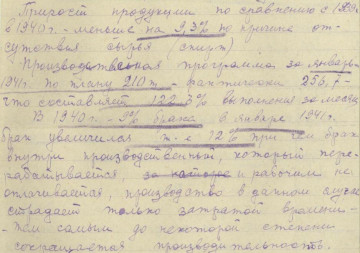 Прирост продукции по сравнению с 1939
в 1940 г. - меньше на 9,3% по причине от-
сутствия сырья (спирт)
Производственная программа за январь
1941 г. по плану 210 т - фактически 255,
что составляет 122,5% выполнения за месяц
В 1940 г. - 9% брака, в январе 1941 г.
брак увеличился 12% при чем брак
внутри производственный, который пере-
рабатывается, и рабочим не
оплачивается, производство в данном случае
страдает только затратой времени
тем самым до некоторой степени
сокращается производительность.